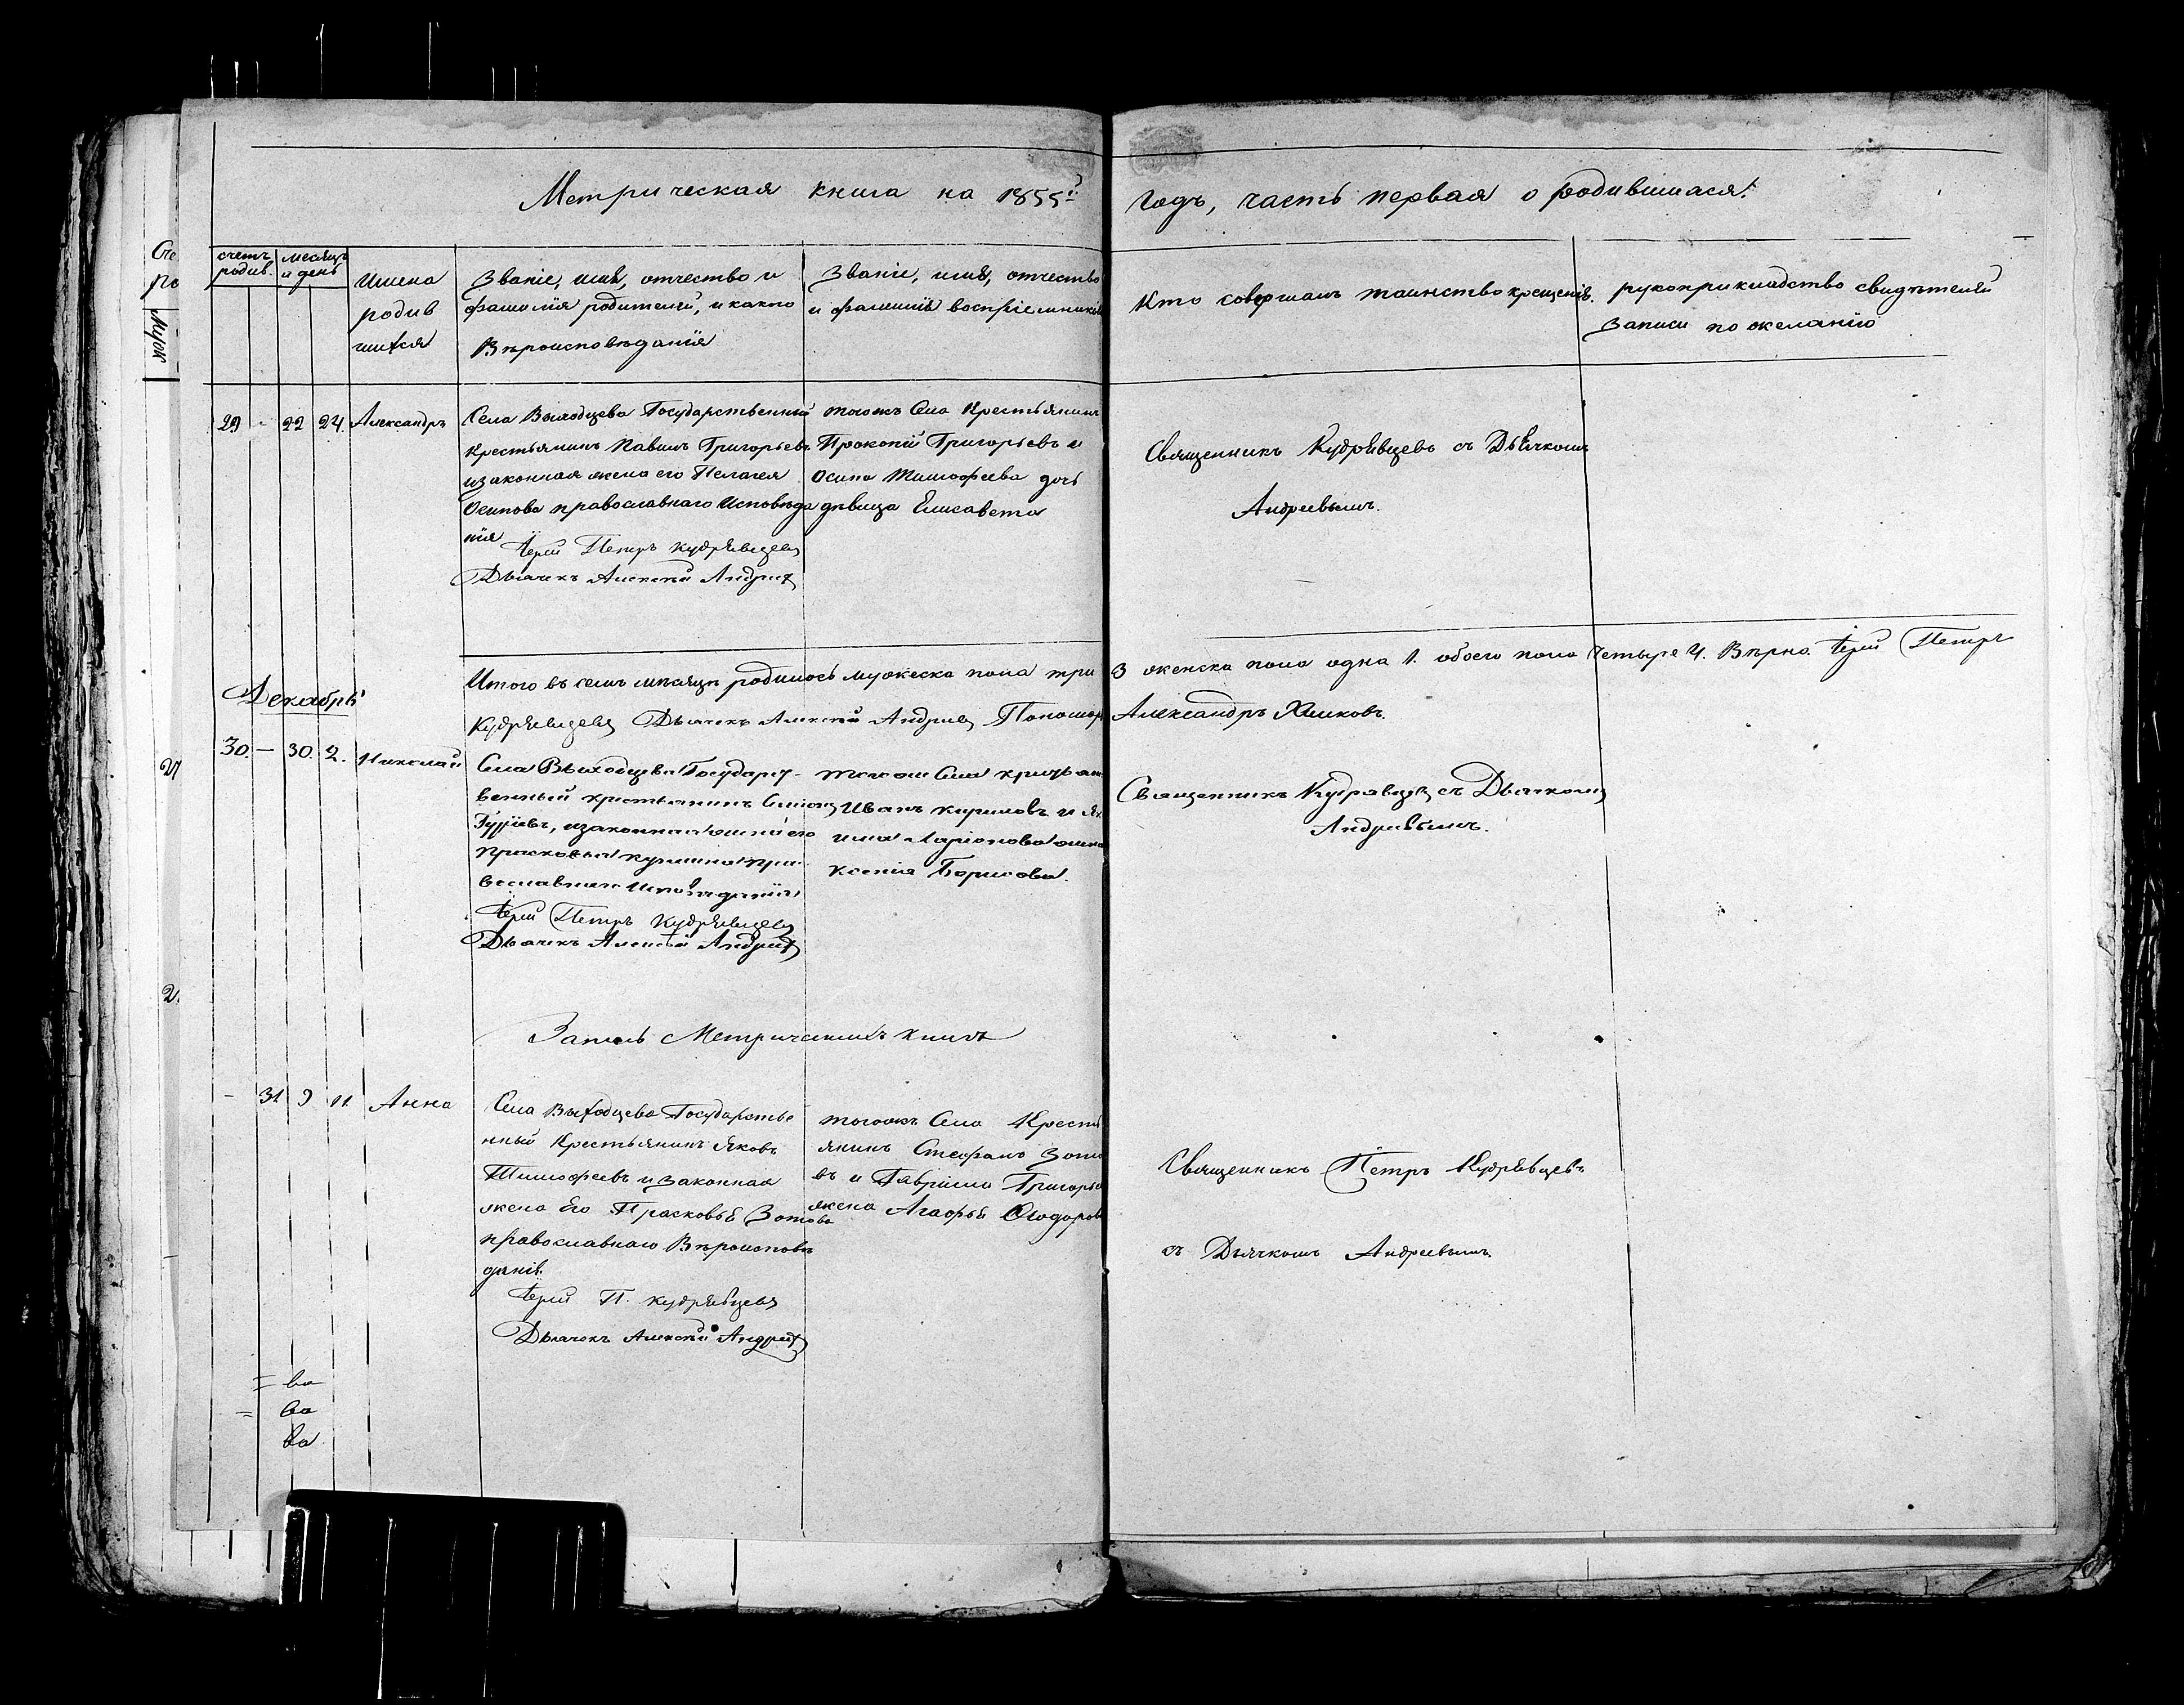 Метрическая книга на 1855й
годъ, часть первая о родившихся.
счетъ родив.
месяцъ и день
Имена
родив
шихся
Званіе, имя, отчество и
фамилія родителей, и какго
Вѣроисповѣданія
Званіе, имя, отчество
и фамиліи воспріемниковъ
Кто совершалъ таинство крещенія.
рукоприкладство свидѣтелей
записи по желанію
29 - 22 24. Александръ
Села Выходцева Государственный
Крестьянинъ Павелъ Григорьевъ
и законная жена его Пелагея
Осипова православнаго исповѣда
нія
Іерей Петръ Кудрявцевъ
Дьячекъ Алексѣй Андреевъ
тогожъ Села Крестьянинъ
Прокопій Григорьевъ и
Осипа Тимофеева дочь
дѣвица Елисавета
Священникъ Кудрявцевъ съ Дьячкомъ
Андреевымъ.
Итого въ семъ мѣсяцѣ родилось мужеска пола три
3 женска пола одна 1. обоего пола четыре 4. Вѣрно. Іерей Петръ
Кудрявцевъ Дьячекъ Алексѣй Андреевъ Пономарь
Александръ
Декабрь
30. — 30. 2. Николай
Села Выходцева Государст-
венный крестьянинъ
Гурьевъ, и законная жена его
Прасковья пра-
вославнаго Исповѣданія
Іерей Петръ Кудрявцевъ
Дьячекъ Алексѣй Андреевъ
Села
Иванъ Кириловъ и Як
има Ларіонова жена
Ксенія Борисова.
Священникъ Кудрявцевъ съ Дьячкомъ
Андреевымъ.
Запись Метрическихъ книгъ
- 31 9 11. Анна
Села Выходцева Государстве
нный Крестьянинъ Яковъ
Тимофеевъ и законная
жена Его Прасковья Зотова
православнаго Вѣроисповѣ
данія.
Іерей П. Кудрявцевъ
Дьячекъ Алексѣй Андреевъ
тогожъ Села Кресть
янинъ Стефанъ Зото
въ и Гавріила Григорье
жена Агафья Ѳодоров
Священникъ Петръ Кудрявцевъ
съ Дьячкомъ Андреевымъ
= ва
= ва
ва